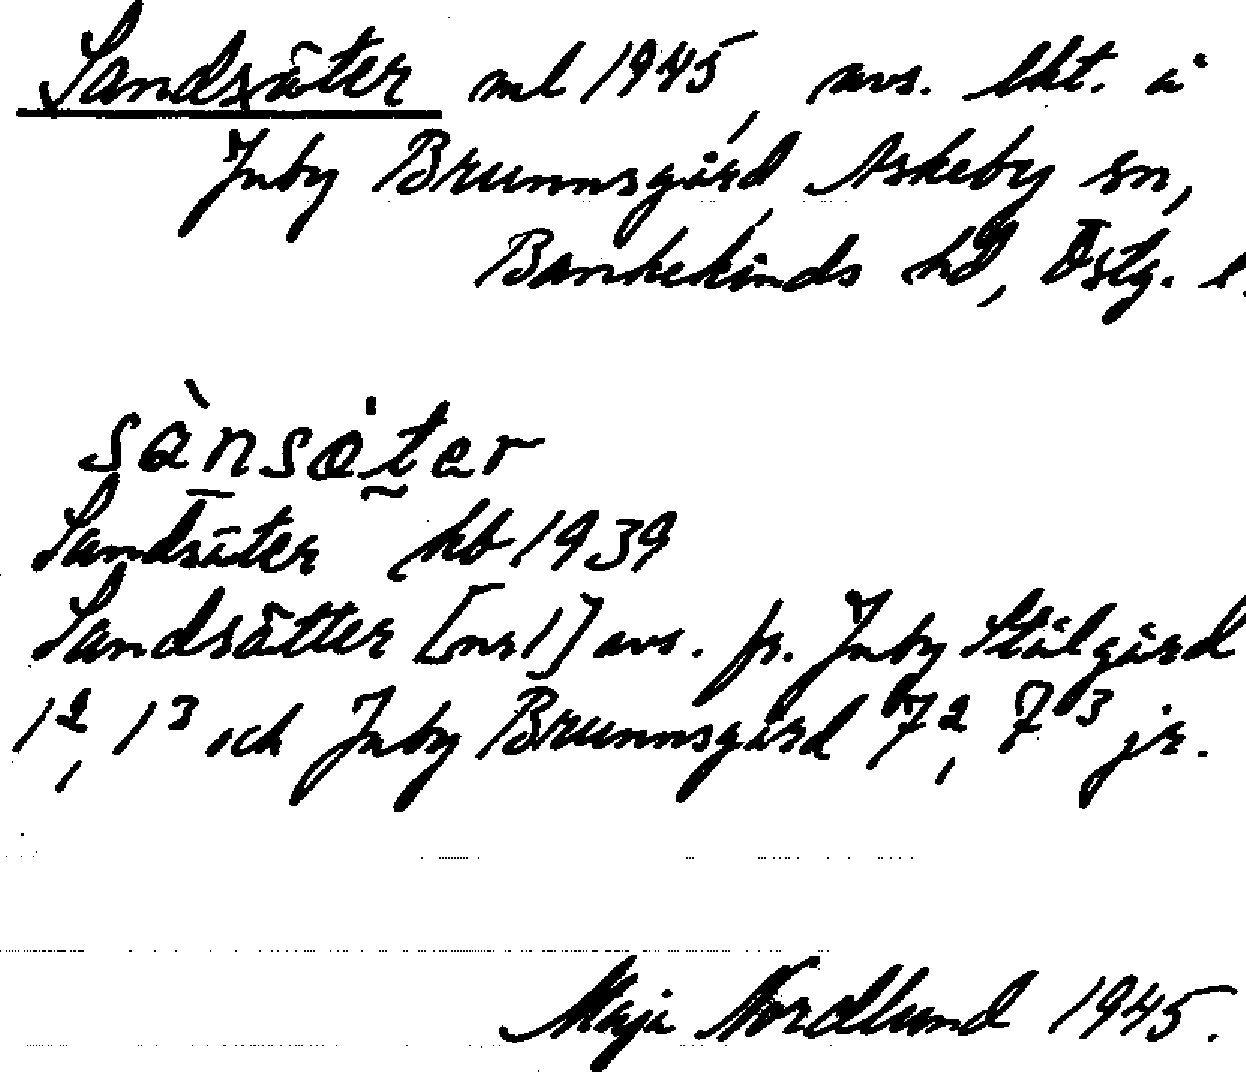 Landsäter ml 1945, avs. lht. å
Juby Brunnsgård, Askeby sn,
Bankekinds hd, Östg. l.
sànsȧter
Landsäter hb 1939
Landsätter [nr 1] avs. fr. Juby Stålgård
1², 1³ och Juby Brunnsgård 7², 7³ jr.
Maja Nordlund 1945.